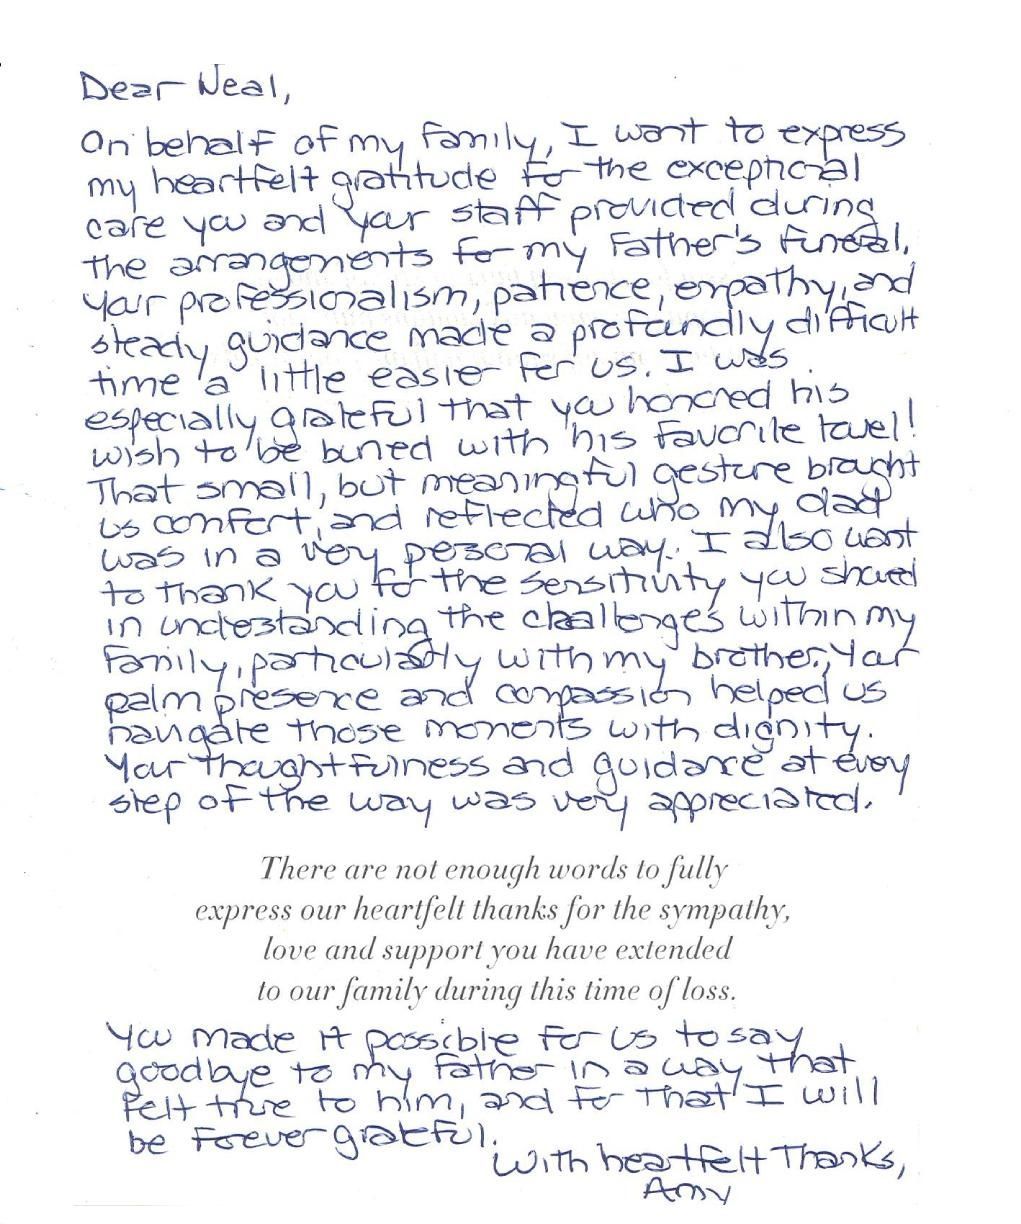 Dear Neal,
On behalf of my family, I want to express
my heartfelt gratitude for the exceptional
care you and your staff provided during
the arrangements for my Father's funeral.
Your professionalism, patience, empathy, and
steady guidance made a profoundly difficult
time a little easier for us. I was
especially grateful that you honored his
wish to be buried with his favorite towel!
That small, but meaningful gesture brought
us comfort, and reflected who my dad
was in a very personal way. I also want
to thank you for the sensitivity you showed
in understanding the challenges within my
family, particularly with my brother, Your
calm presence and compassion helped us
navigate those moments with dignity.
Your thoughtfulness and guidance at every
step of the way was very appreciated.
There are not enough words to fully
express our heartfelt thanks for the sympathy,
love and support you have extended
to our family during this time of loss.
You made it possible for us to say
goodbye to my father in a way that
felt true to him, and for that I will
be forever grateful.
With heartfelt Thanks,
Amy